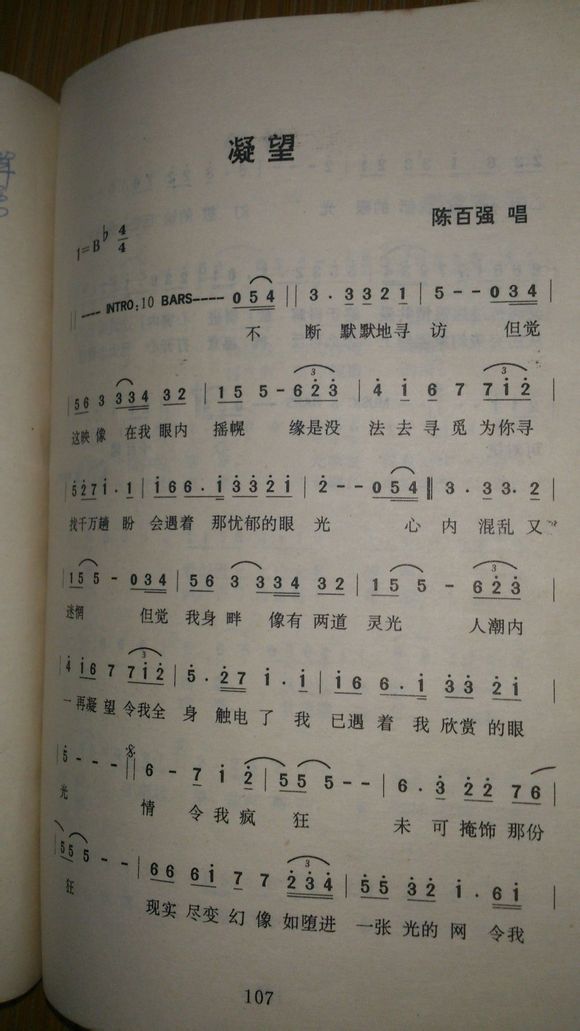 凝望
陈百强 唱
1=B♭ 4/4
INTRO:10 BARS 0 5 4 || 3 · 3 3 2 1 | 5 - - 0 3 4 |
不 断 默默地寻 访 但觉
5 6 3 3 3 4 3 2 | 1 5 5 - 6 2̇ 3̇ | 4̇ i 6 7 7 i 2̇ |
这映像 在我 眼内 摇幌 缘是没 法 去 寻 觅 为你寻
5̇ 2̇ 7 i · 1 | i 6 6 · i 3̇ 3̇ 2̇ i | 2̇ - - 0 5 4 || 3 · 3 3 · 2 |
找千万趟 盼 会遇着 那忧郁的眼 光 心 内 混乱 又
1 5 5 - 0 3 4 | 5 6 3 3 3 4 3 2 | 1 5 5 - 6 2̇ 3̇ |
迷惘 但觉 我身 畔 像有 两道 灵光 人潮内
4̇ i 6 7 7 i 2̇ | 5 · 2̇ 7 i · i | i 6 6 · i 3̇ 3̇ 2̇ i |
一再凝 望 令我全 身 触电 了 我 已遇着 我 欣赏 的眼
5̇ - - - || 6 - 7 i 2̇ | 5 5 5 - - | 6 · 3̇ 2̇ 2̇ 7 6 |
光 情 令我疯 狂 未 可 掩饰 那份
5 5 5 - - | 6 6 6 i 7 7 2̇ 3̇ 4̇ | 5̇ 5̇ 3̇ 2̇ i · 6 i |
狂 现实 尽变 幻 像 如堕进 一张 光的 网 令我
107